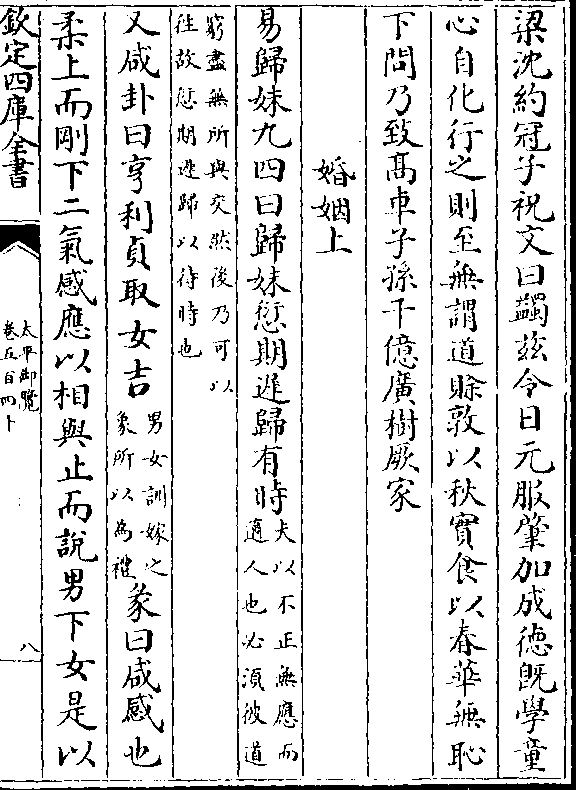 梁沈約冠子祝文曰蠲兹令日元服肇加成徳既學童
心自化行之則至無謂道賒敦以秋實食以春華無恥
下問乃致髙車子孫千億廣樹厥家
婚姻上
易歸妹九四曰歸妹愆期遲歸有時夫以不正無應而
適人也必須彼道
窮盡無所與交然後乃可以
徃故愆期遲歸以待時也
又咸卦曰亨利貞取女吉男女訓嫁之
象所以為禮彖曰咸感也
柔上而剛下二氣感應以相與止而說男下女是以
欽定四庫全書
太平御覽
卷五百四十
八